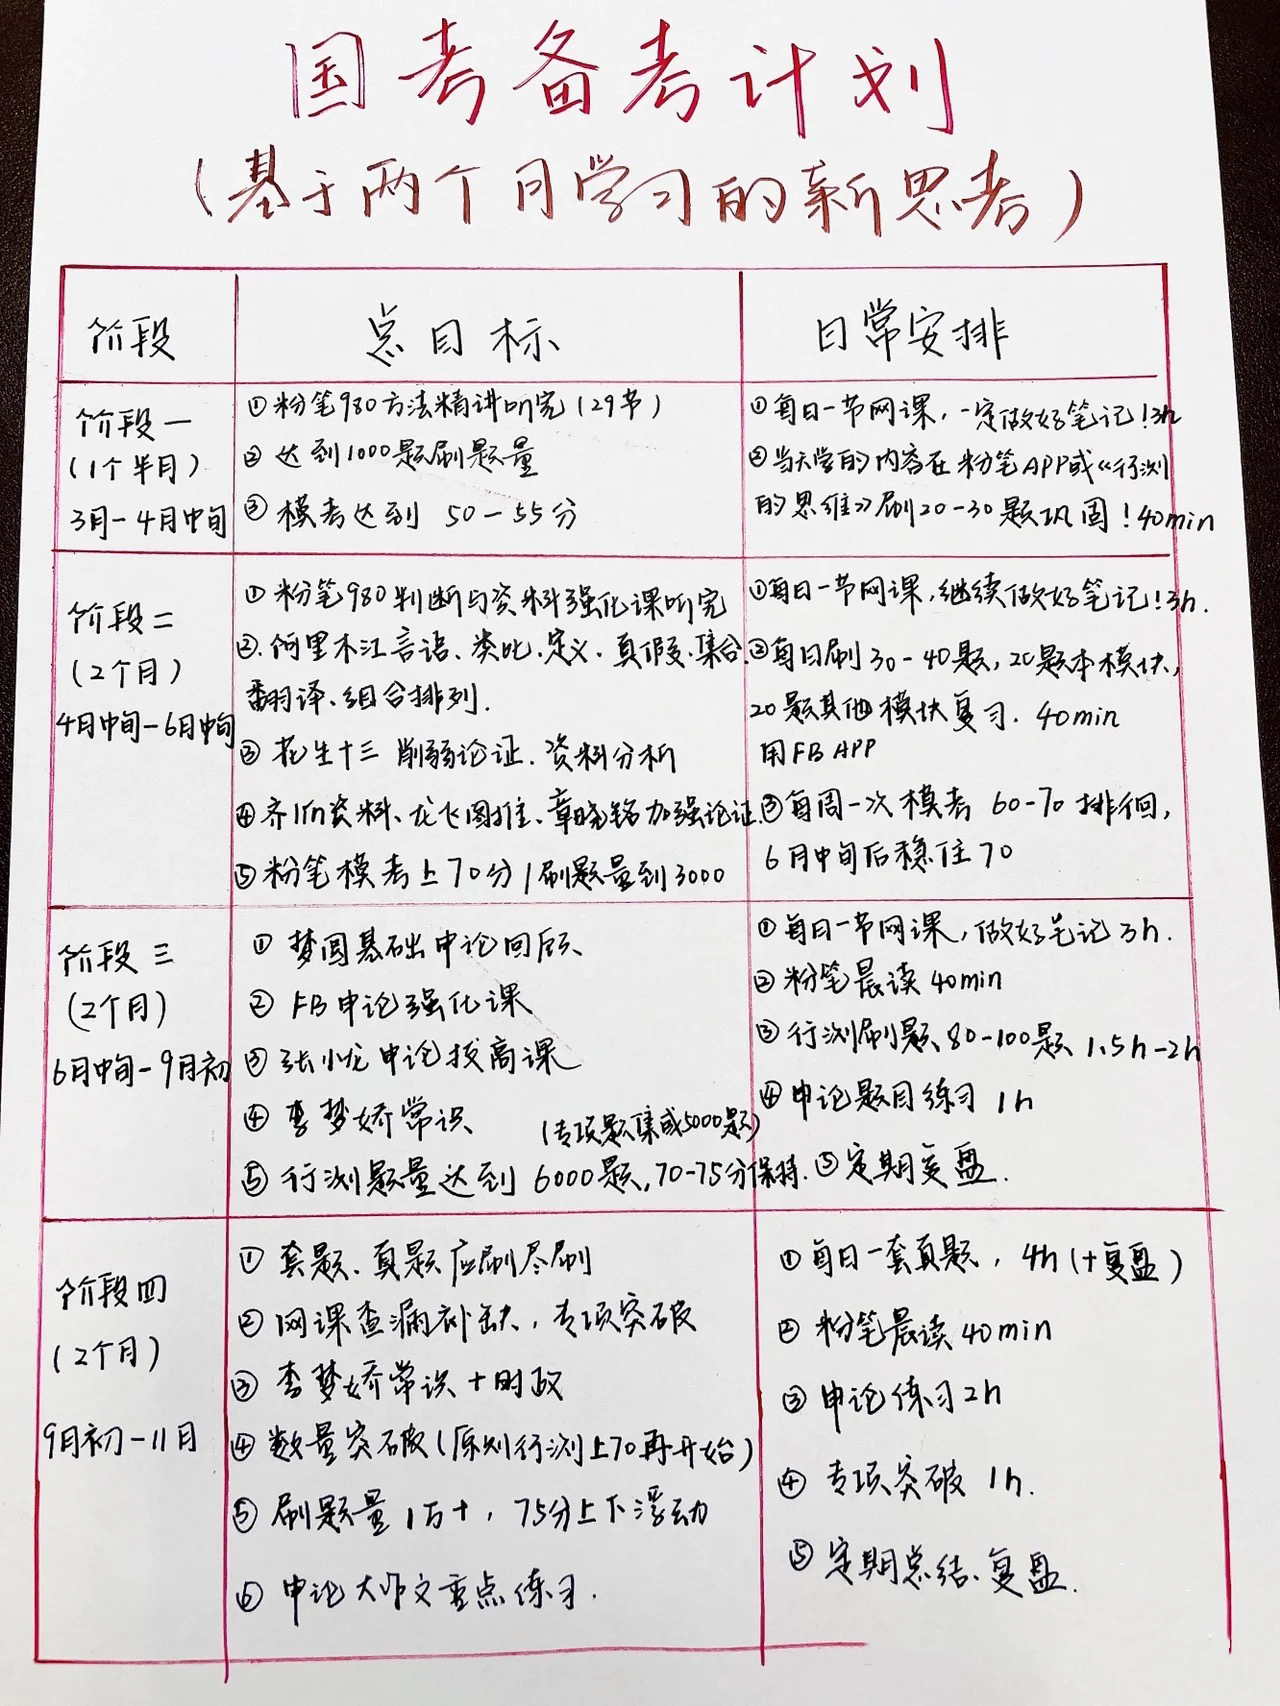 国考备考计划
(基于两个月学习的新思考)
阶段
总目标
日常安排
阶段一
(1个半月)
3月-4月中旬
①粉笔980方法精讲听完(29节)
②达到1000题刷题量
③模考达到 50-55分
①每日一节网课,一定做好笔记!3h
②当天学的内容在粉笔APP或《行测
的思维》刷20-30题巩固!40min
阶段二
(2个月)
4月中旬-6月中旬
①粉笔980判断与资料强化课听完
②.阿里木江言语、类比.定义.真假.集合.
翻译、组合排列.
③花生十三 削弱论证.资料分析
④齐麟资料、龙飞图推、章晓铭加强论证.
⑤粉笔模考上70分/刷题量到3000
①每日一节网课,继续做好笔记!3h.
②每日刷30-40题,20题本模块,
20题其他模块复习. 40min
用FB APP
③每周一次模考 60-70徘徊,
6月中旬后稳住70
阶段三
(2个月)
6月中旬-9月初
①梦圆基础申论回顾
②FB申论强化课
③张小龙申论拔高课
④李梦娇常识
(专项题集或5000题)
⑤行测题量达到6000题,70-75分保持.
①每日一节网课,做好笔记3h.
②粉笔晨读40min
③行测刷题80-100题 1.5h-2h
④申论题目练习 1h
⑤定期复盘.
阶段四
(2个月)
9月初-11月
①套题、真题应刷尽刷
②网课查漏补缺,专项突破
③李梦娇常识+时政
④数量突破(原则行测上70再开始)
⑤刷题量1万+,75分上下浮动
⑥申论大作文重点练习.
①每日一套真题,4h(+复盘)
②粉笔晨读40min
③申论练习2h
④专项突破 1h.
⑤定期总结、复盘.